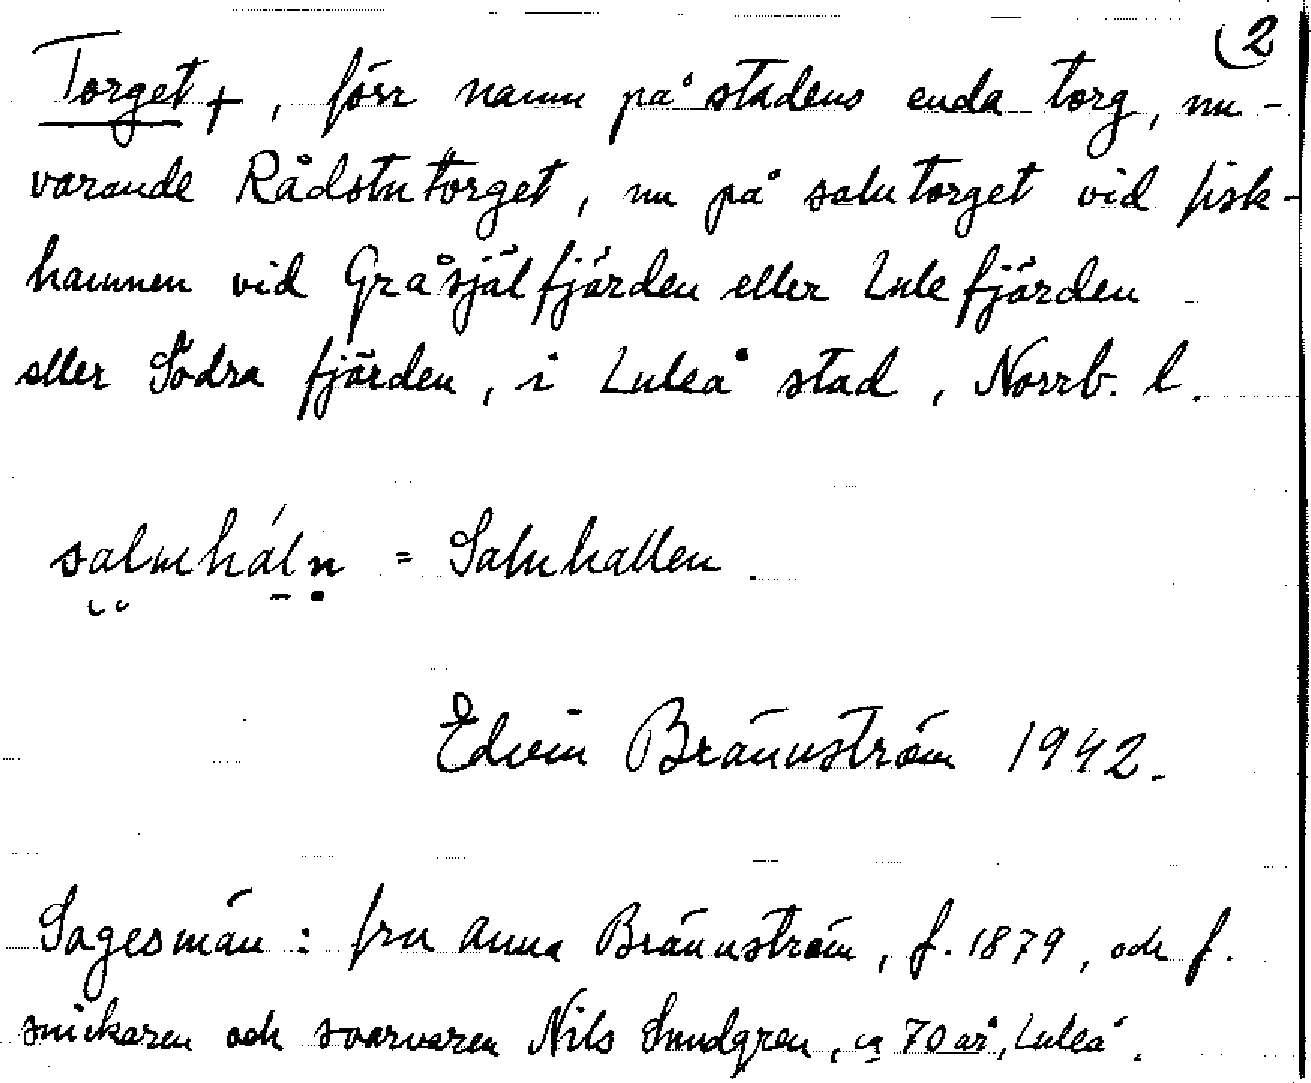 2
Torget +, förr namn på stadens enda torg, nu-
varande Rådstutorget, nu på salutorget vid fisk-
hamnen vid Gråsjälfjärden eller Lulefjärden
eller Södra fjärden, i Luleå stad, Norrb. l.
saluháln = Saluhallen.
Edvin Brännström 1942.
Sagesmän: fru Anna Brännström, f. 1879, och f.
snickaren och svarvaren Nils Sundgren, ca 70 år, Luleå.